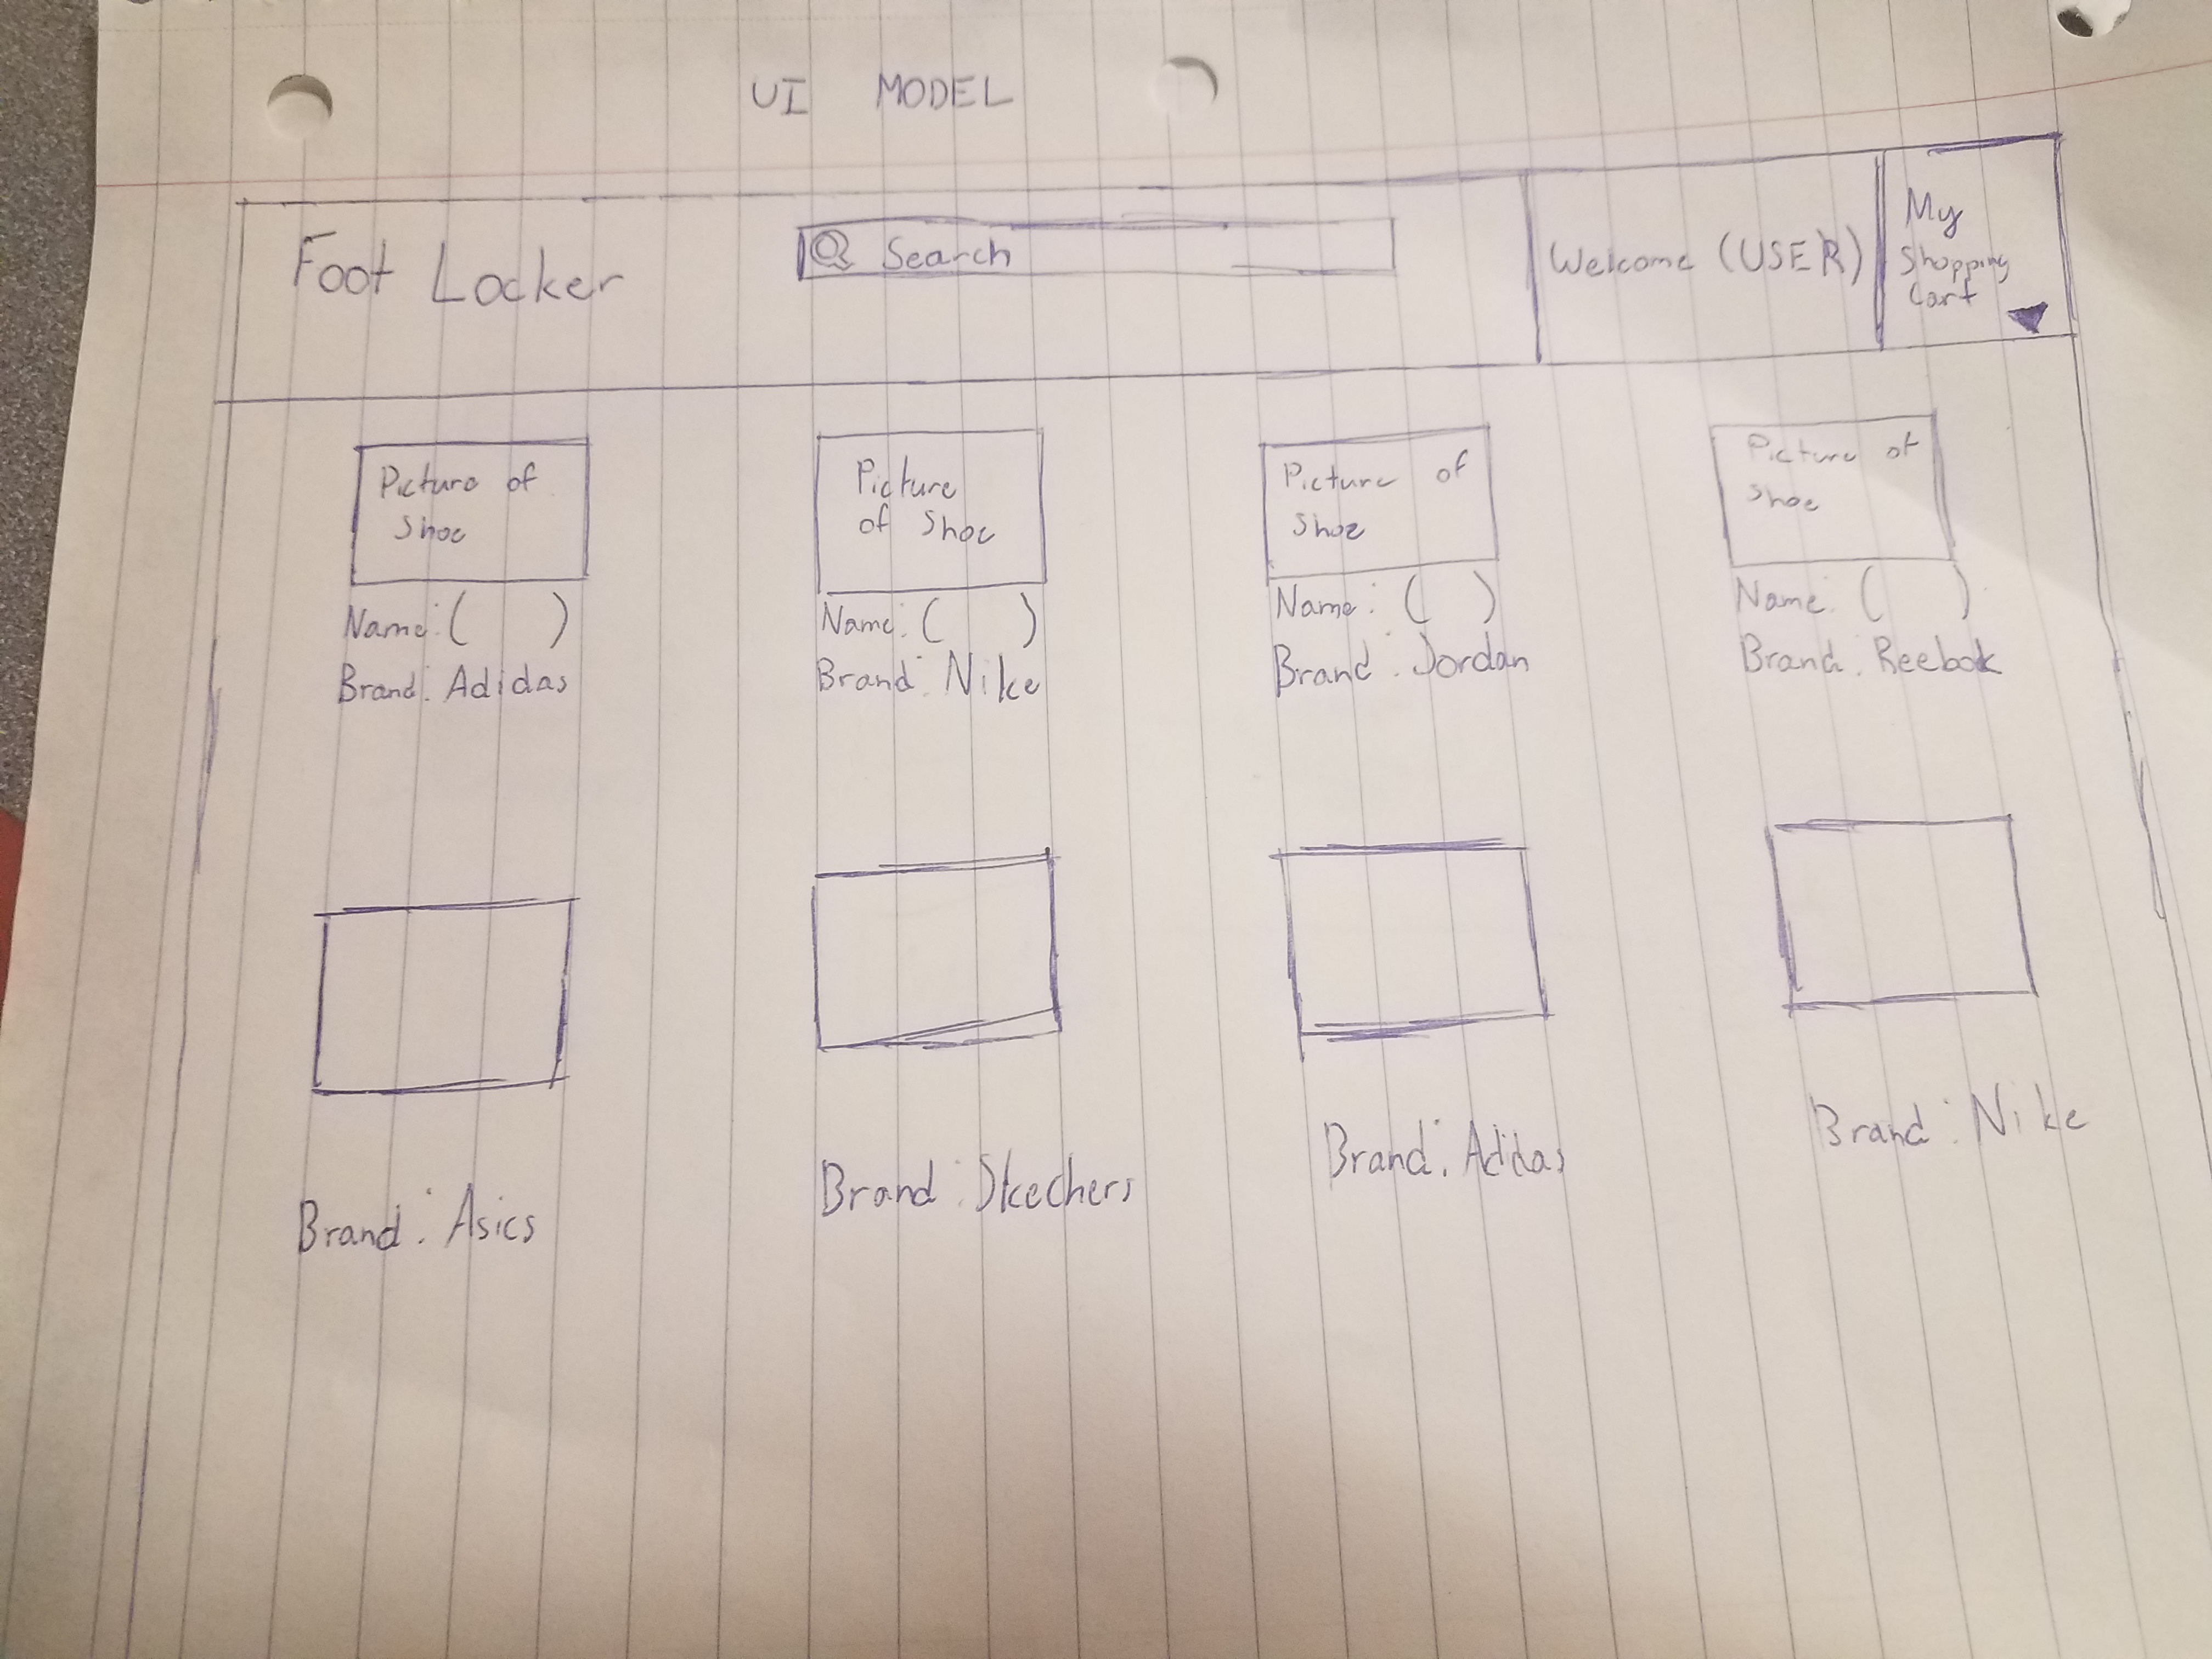 UI MODEL
Foot Locker
Search
Welcome (USER)
My
Shopping
Cart
Picture of
Shoe
Name: ( )
Brand: Adidas
Picture
of Shoe
Name: ( )
Brand: Nike
Picture of
Shoe
Name: ( )
Brand: Jordan
Picture of
Shoe
Name: ( )
Brand: Reebok
Brand: Asics
Brand: Skechers
Brand: Adidas
Brand: Nike